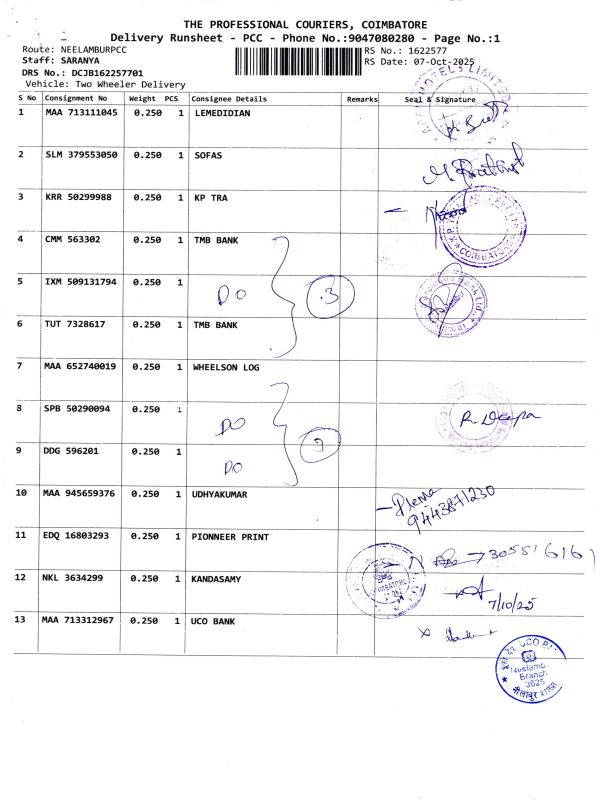 THE PROFESSIONAL COURIERS, COIMBATORE
Delivery Runsheet - PCC - Phone No.:9047080280 - Page No.:1
Route: NEELAMBURPCC
RS No.: 1622577
Staff: SARANYA
RS Date: 07-Oct-2025
DRS No.: DCJB162257701
Vehicle: Two Wheeler Delivery
S No Consignment No Weight PCS Consignee Details Remarks Seal & Signature
1 MAA 713111045 0.250 1 LEMEDIDIAN
2 SLM 379553050 0.250 1 SOFAS
3 KRR 50299988 0.250 1 KP TRA
COIMBATORE
4 CMM 563302 0.250 1 TMB BANK
5 IXM 509131794 0.250 1
DO 3
6 TUT 7328617 0.250 1 TMB BANK
7 MAA 652740019 0.250 1 WHEELSON LOG
8 SPB 50290094 0.250 1
DO R. Deepa
9 DDG 596201 0.250 1
DO
10 MAA 945659376 0.250 1 UDHYAKUMAR
9443871230
11 EDQ 16803293 0.250 1 PIONNEER PRINT
12 NKL 3634299 0.250 1 KANDASAMY
7/10/25
13 MAA 713312967 0.250 1 UCO BANK
UCO BA
Neelamb
Branch
3625